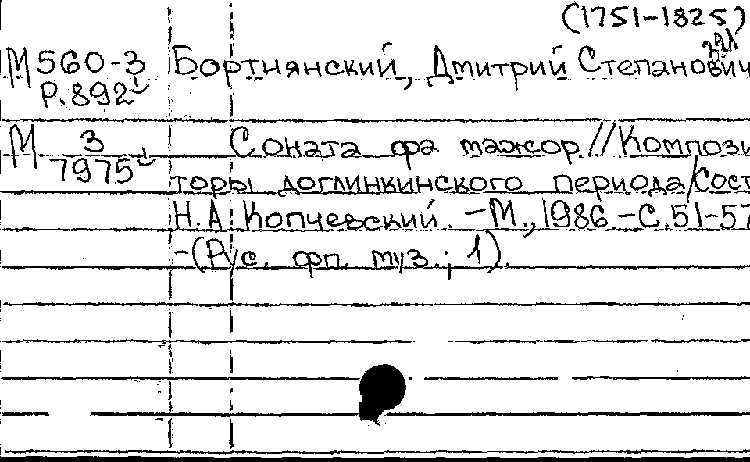 (1751-1825)
М560-3 Бортнянский, Дмитрий Степанович
Р.892
М 3 Соната фа мажор // Компози
7975 торы доглинкинского периода / Сост
Н.А. Копчевский. - М., 1986 - С. 51-57
- (Рус. фп. муз.; 1).